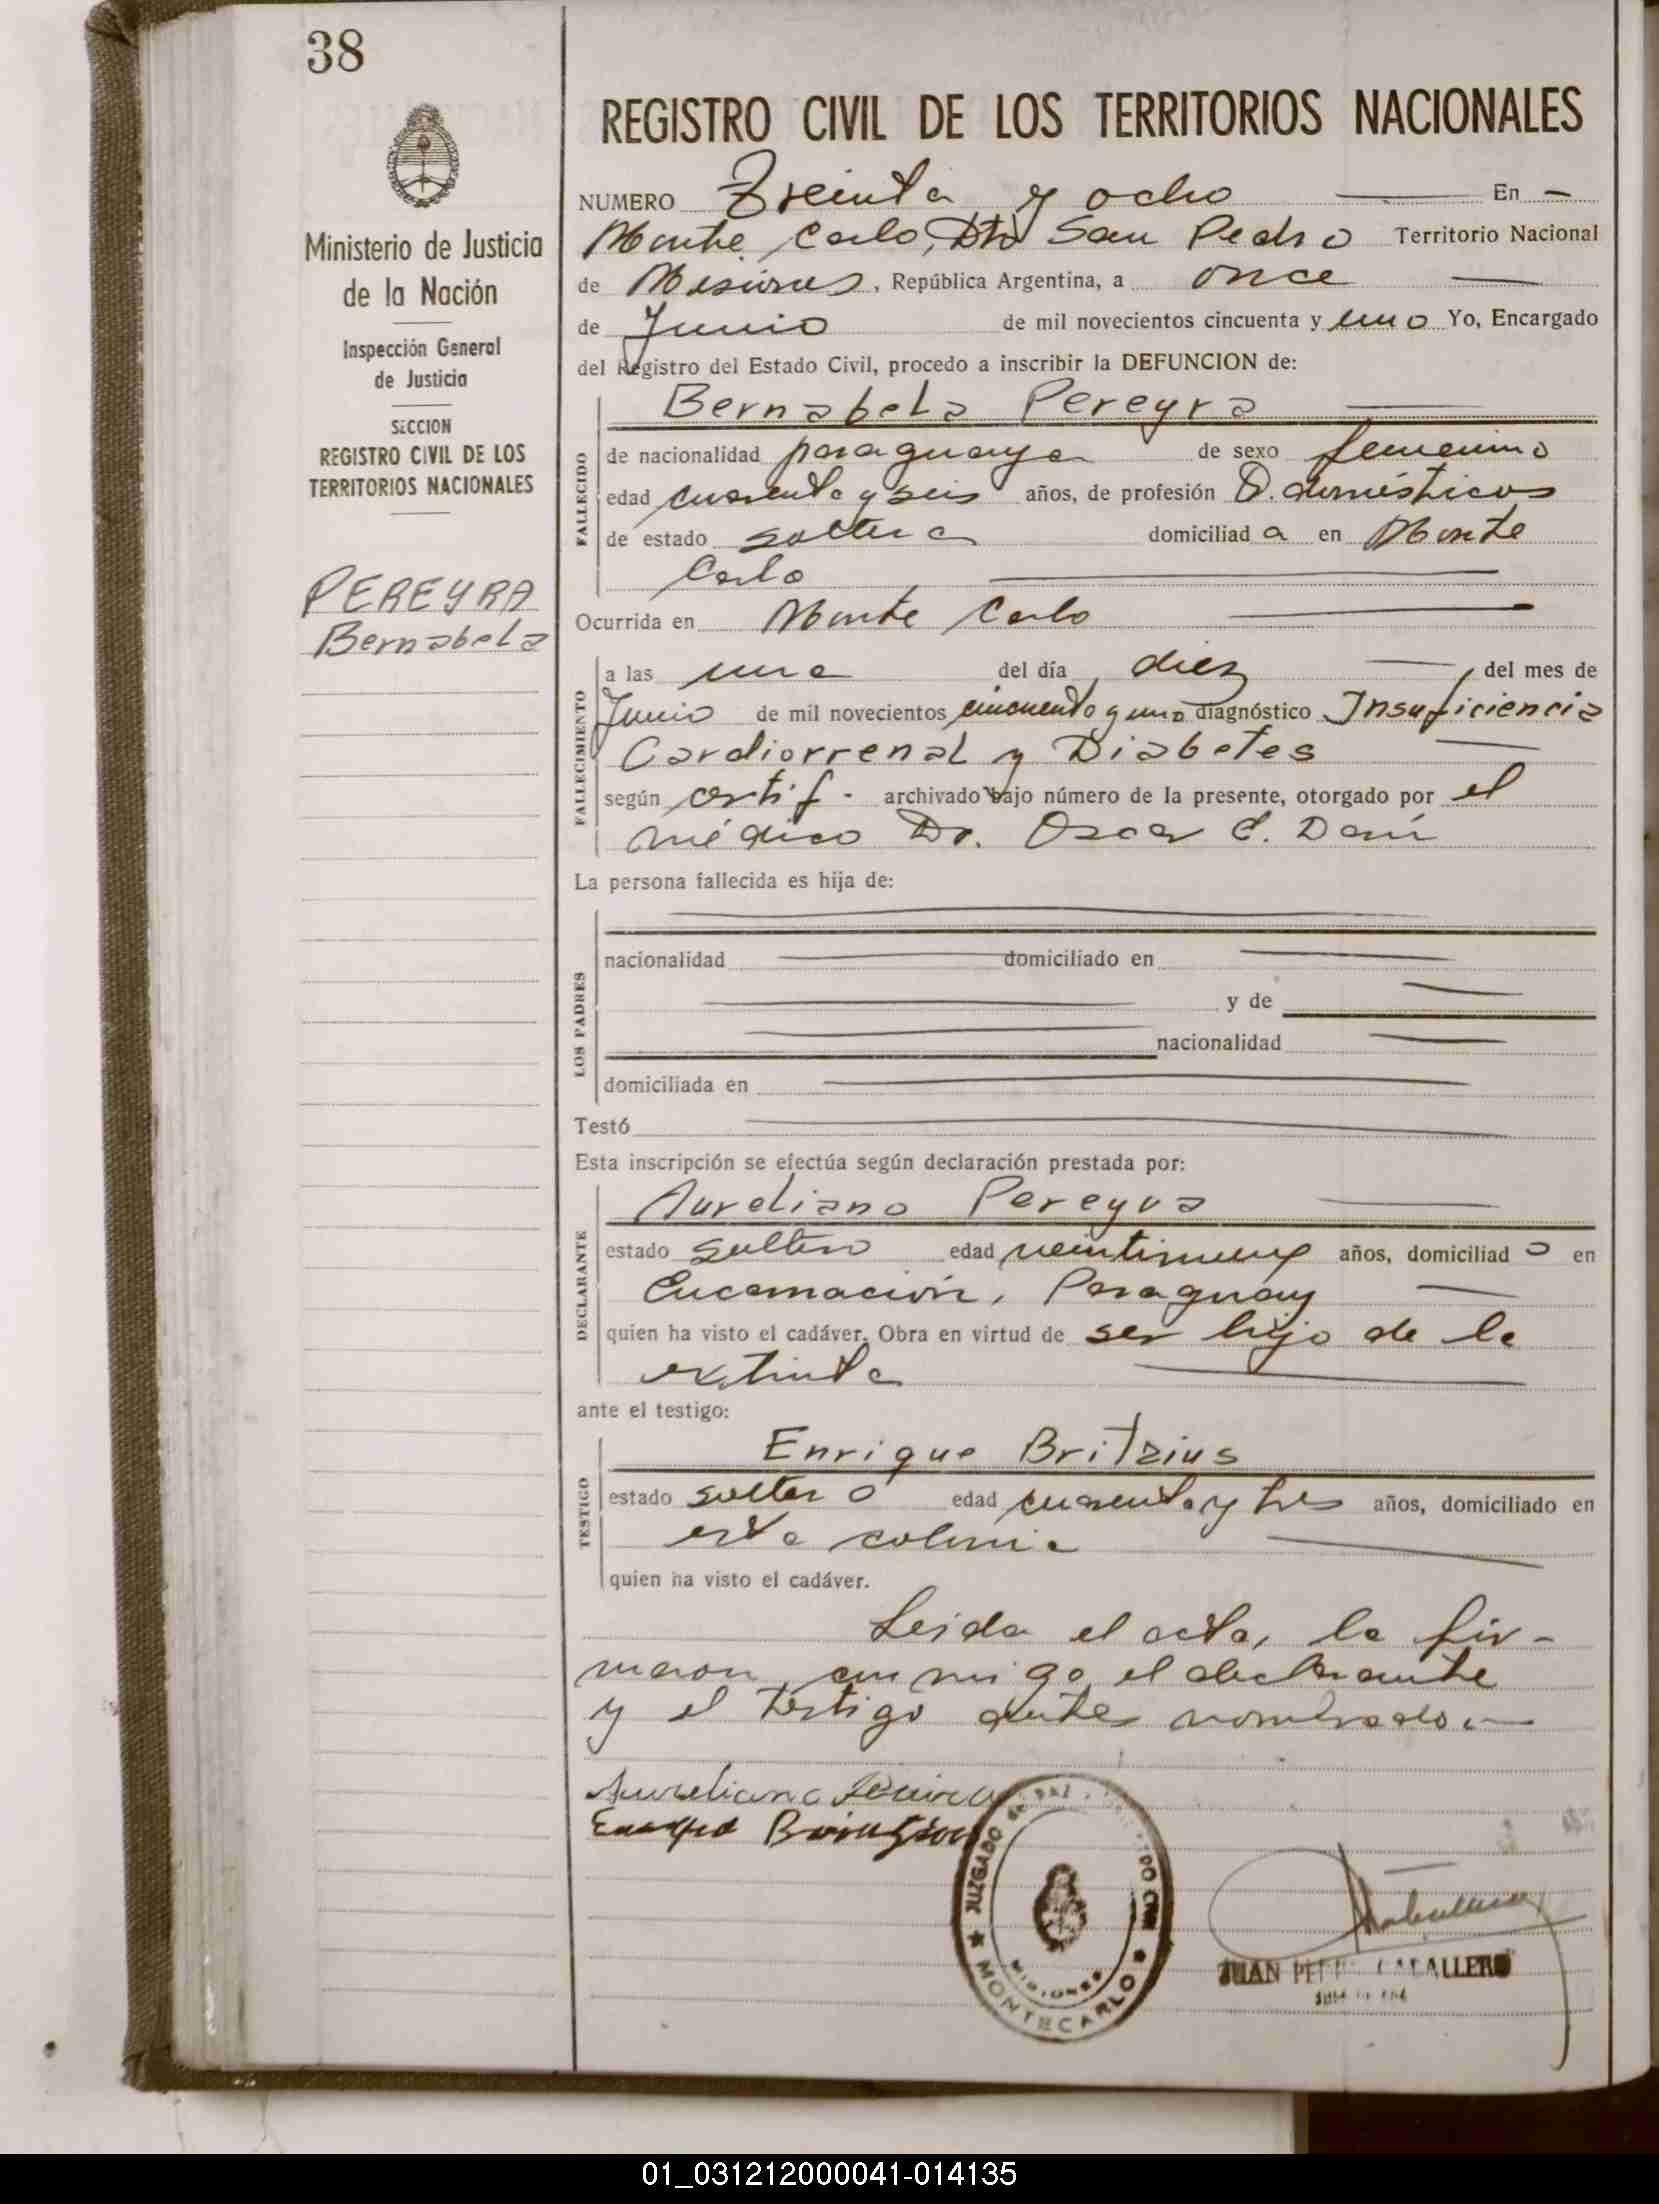 38
Ministerio de Justicia
de la Nación
Inspección General
de Justicia
SECCION
REGISTRO CIVIL DE LOS
TERRITORIOS NACIONALES
PEREYRA
Bernabela
REGISTRO CIVIL DE LOS TERRITORIOS NACIONALES
NUMERO Treinta y ocho En
Monte Carlo, Dto San Pedro Territorio Nacional
de Misiones, República Argentina, a once
de Junio de mil novecientos cincuenta y uno Yo, Encargado
del Registro del Estado Civil, procedo a inscribir la DEFUNCION de:
Bernabela Pereyra
FALLECIDO
de nacionalidad paraguaya de sexo femenino
edad cuarenta y seis años, de profesión Q. domésticos
de estado soltera domiciliad a en Monte
Carlo
Ocurrida en Monte Carlo
FALLECIMIENTO
a las una del día diez, del mes de
Junio de mil novecientos cincuenta y uno diagnóstico Insuficiencia
Cardiorrenal y Diabetes
según certif. archivado bajo número de la presente, otorgado por el
médico Dr. Oscar C.
La persona fallecida es hija de:
LOS PADRES
nacionalidad domiciliado en
y de
nacionalidad
domiciliada en
Testó
Esta inscripción se efectúa según declaración prestada por:
Aureliano Pereyra
DECLARANTE
estado soltero edad veintinueve años, domiciliad o en
Encarnación, Paraguay
quien ha visto el cadáver. Obra en virtud de ser hijo de la
extinta
ante el testigo:
Enrique Britzius
TESTIGO
estado soltero edad cuarenta y tres años, domiciliado en
esta colonia
quien ha visto el cadáver.
Leida el acta, la fir-
maron conmigo el declarante
y el testigo antes nombrado.
Aureliano
JUZGADO DE PAZ
MISIONES
MONTECARLO
JUAN CABALLERO
01_031212000041-014135